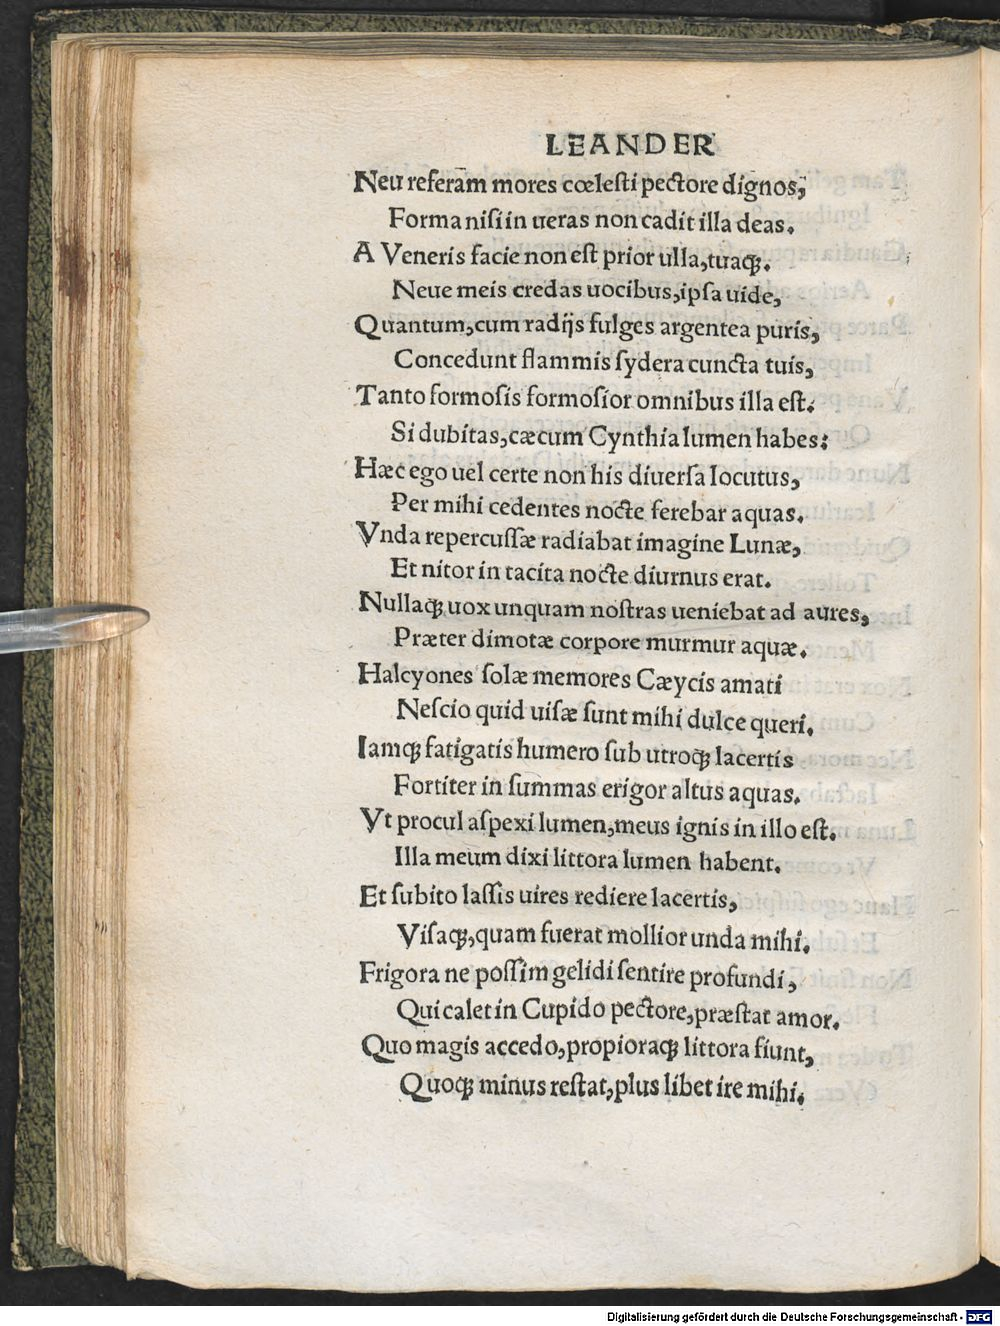 LEANDER
Neu referam mores cœlesti pectore dignos,
Forma nisi in ueras non cadit illa deas.
A Veneris facie non est prior ulla, tuaq;.
Neue meis credas uocibus, ipsa uide,
Quantum, cum radijs fulges argentea puris,
Concedunt flammis sydera cuncta tuis,
Tanto formosis formosior omnibus illa est.
Si dubitas, cæcum Cynthia lumen habes:
Hæc ego uel certe non his diuersa locutus,
Per mihi cedentes nocte ferebar aquas.
Vnda repercussæ radiabat imagine Lunæ,
Et nitor in tacita nocte diurnus erat.
Nullaq; uox unquam nostras ueniebat ad aures,
Præter dimotæ corpore murmur aquæ.
Halcyones solæ memores Cæycis amati
Nescio quid uisæ sunt mihi dulce queri.
Iamq; fatigatis humero sub utroq; lacertis
Fortiter in summas erigor altus aquas.
Vt procul aspexi lumen, meus ignis in illo est.
Illa meum dixi littora lumen habent.
Et subito lassis uires rediere lacertis,
Visaq;, quam fuerat mollior unda mihi.
Frigora ne possim gelidi sentire profundi,
Qui calet in Cupido pectore, præstat amor.
Quo magis accedo, propioraq; littora fiunt,
Quoq; minus restat, plus libet ire mihi.
Digitalisierung gefördert durch die Deutsche Forschungsgemeinschaft - DFG